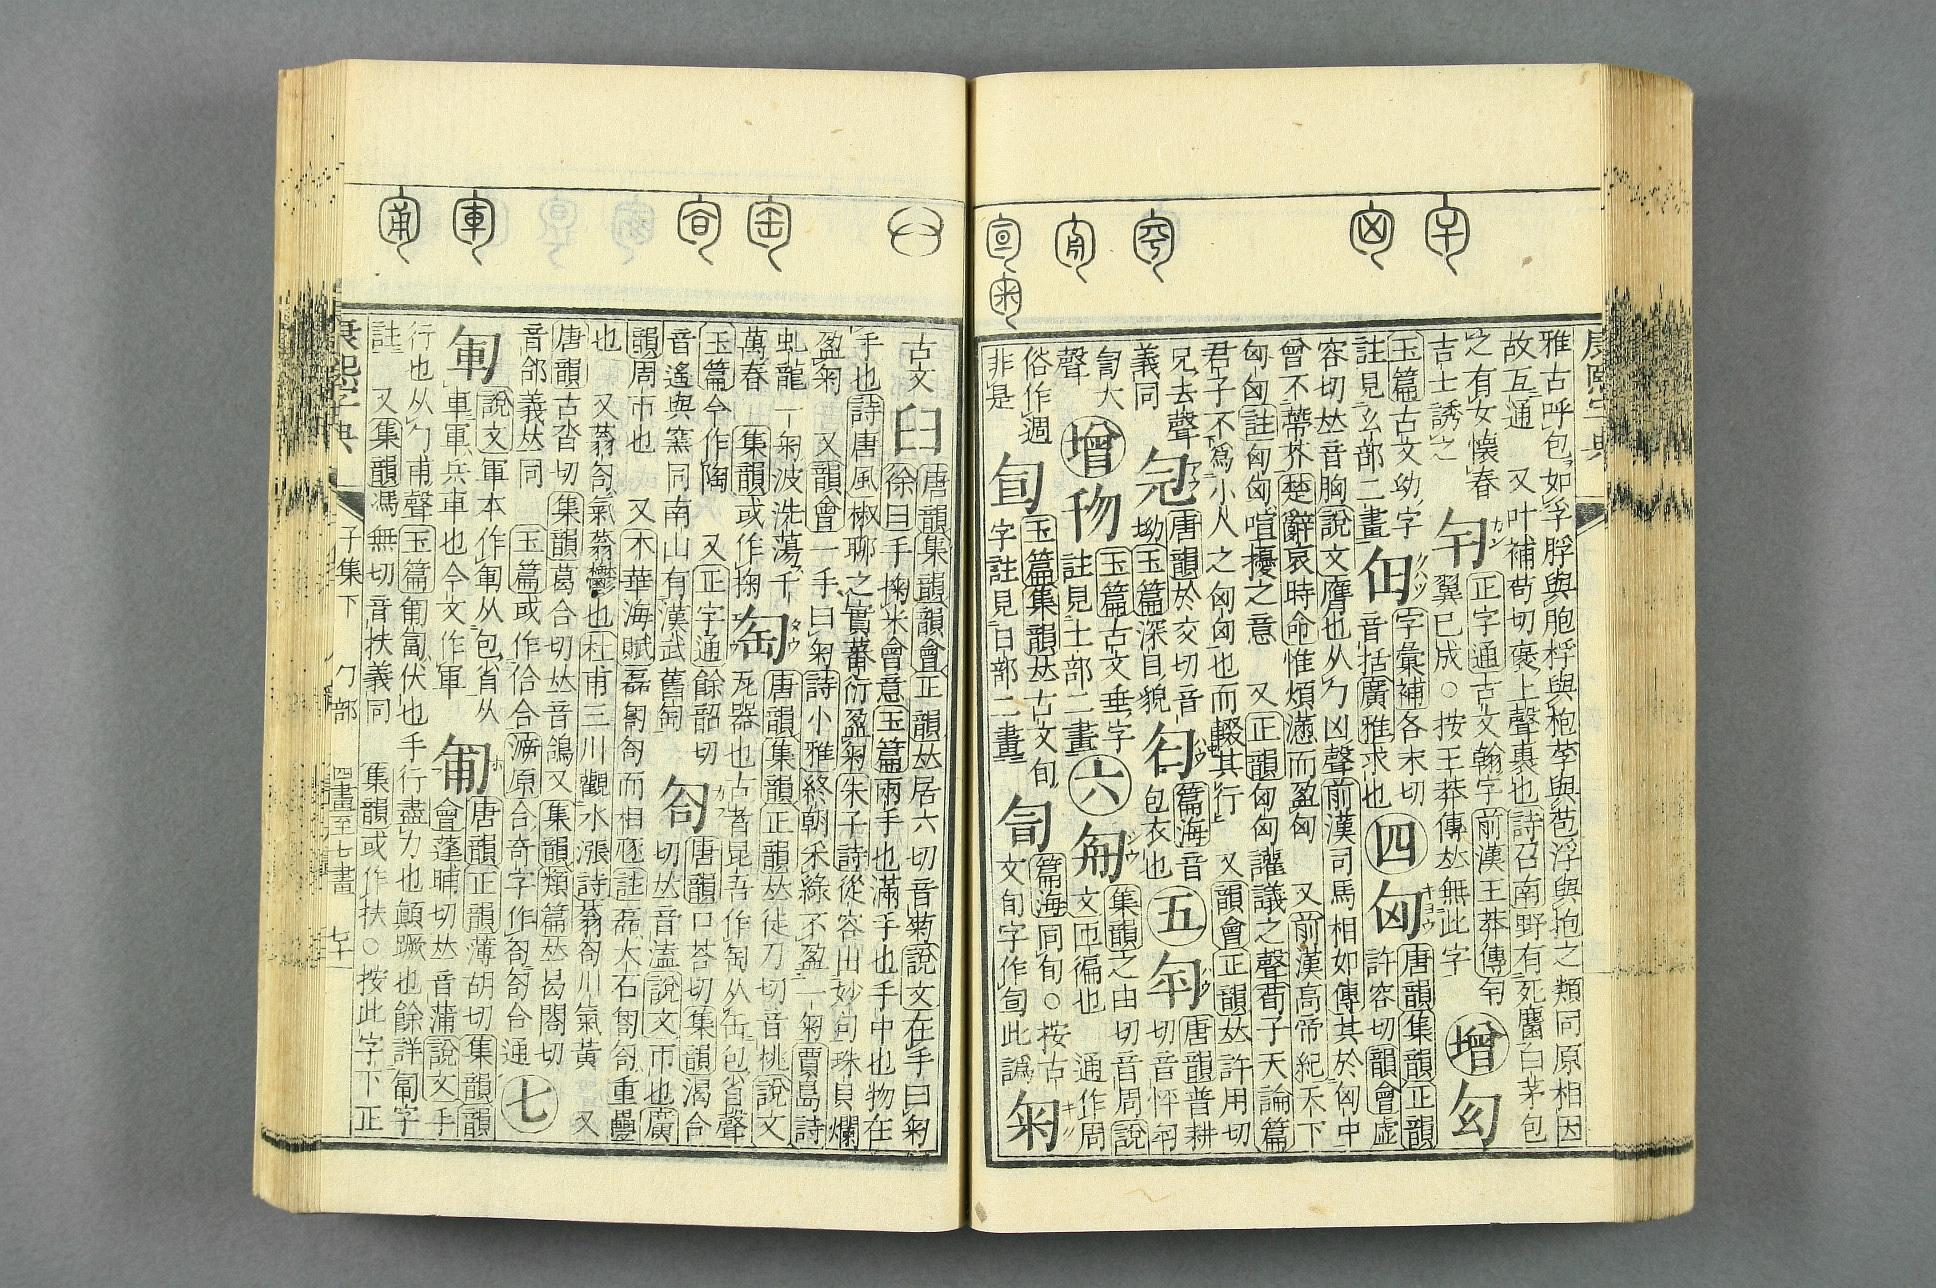 康熙字典
雅古呼包如孚脬與胞桴與枹莩與苞浮與抱之類同原相因
故互通 又叶補苟切褒上聲裹也詩召南野有死麕白茅包
之有女懷春
吉士誘之
カン
正字通古文翰字前漢王莽傳
翼已成○按王莽傳𠀤無此字
增
玉篇古文幼字
註見幺部二畫
字彙補各末切
音括廣雅求也
四
匈
キヨウ
唐韻集韻正韻
許容切韻會虛
容切𠀤音胸說文膺也从勹凶聲前漢司馬相如傳其於匈中
曾不蔕芥楚辭哀時命惟煩懣而盈匈 又前漢高帝紀天下
匈匈註匈匈喧擾之意 又正韻匈匈讙議之聲荀子天論篇
君子不爲小人之匈匈也而輟其行 又韻會正韻𠀤許用切
兄去聲
義同
唐韻於交切音
坳玉篇深目貌
篇海音
包衣也
五
唐韻普耕
切音怦
匉訇大
聲
增
玉篇古文垂字
註見土部二畫
六
匊
集韻之由切音周說
文帀徧也 通作周
俗作週
非是
玉篇集韻𠀤古文旬
字註見日部二畫
篇海同旬○按古
文旬字作㫬此譌
匊
キク
古文
臼
唐韻集韻韻會正韻𠀤居六切音菊說文在手曰匊
徐曰手掬米會意玉篇兩手也滿手也手中也物在
手也詩唐風椒聊之實蕃衍盈匊朱子詩從容出妙句珠貝爛
盈匊 又韻會一手曰匊詩小雅終朝采綠不盈一匊賈島詩
虬龍一匊波洗蕩千
萬春 集韻或作掬
匋
タウ
唐韻集韻正韻𠀤徒刀切音桃說文
瓦器也古者昆吾作匋从缶包省聲
玉篇今作陶 又正字通餘韶切
音遙與窯同南山有漢武舊匋
匌
唐韻口荅切集韻渴合
切𠀤音溘說文帀也廣
韻周帀也 又木華海賦磊匒匌而相豗註磊大石匒匌重疊
也 又蓊匌氣蓊鬱也杜甫三川觀水漲詩蓊匌川氣黃 又
唐韻古沓切集韻葛合切𠀤音鴿又集韻類篇𠀤曷閤切
音郃義𠀤同 玉篇或作佮合溯原合奇字作匌匌合通
七
說文軍本作𠣞从包省从
車軍兵車也今文作軍
匍
ホ
唐韻正韻薄胡切集韻韻
會蓬晡切𠀤音蒲說文手
行也从勹甫聲玉篇匍匐伏也手行盡力也顛蹶也餘詳匐字
註 又集韻馮無切音扶義同 集韻或作扶○按此字下正
康熙字典
子集下 勹部
四畫至七畫
七十一